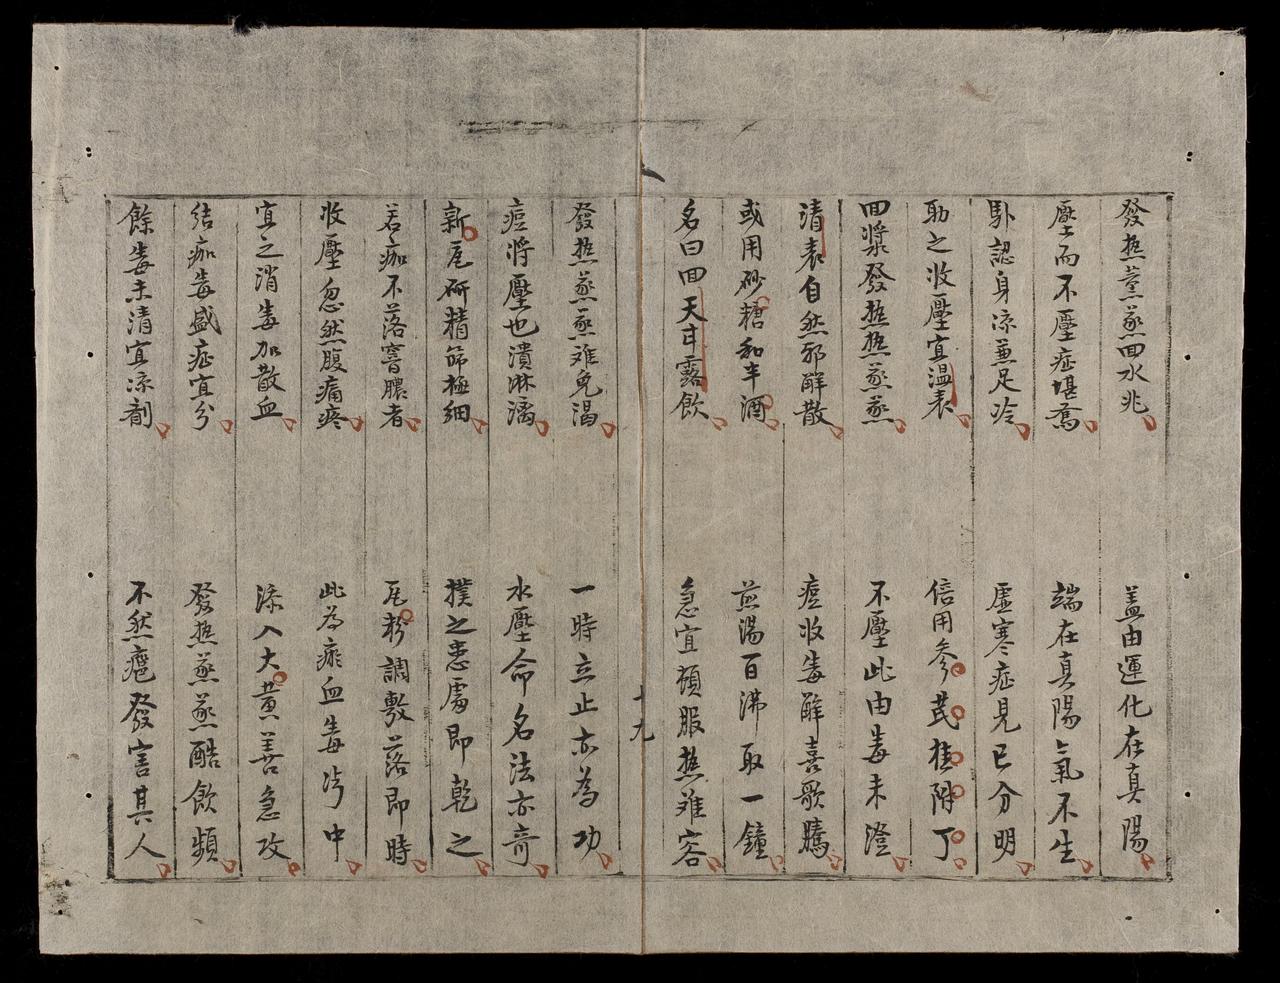 發热薰蒸回水兆 盖由運化在真陽
壓而不壓症堪驚 端在真陽氣不生
卧認身凉兼足冷 虛寒症見已分明
助之收壓宜温表 信用參芪桂附丁
回漿發热热蒸蒸 不壓此由毒未澄
清表自然邪解散 痘收毒解喜歌騰
或用砂糖和半酒 煎湯百沸取一鐘
名曰回天甘露飲 急宜頓服热难容
十九
發热蒸蒸难免渴 一時立止亦為功
痘将壓也潰淋漓 水壓命名法亦奇
新瓦研精篩極細 撲之患處即乾之
若痂不落窨膿者 瓦粉調敷落即時
收壓忽然腹痛疼 此為瘀血毒 中
宜之消毒加散血 添入大黄善急攻
结痂毒盛症宜分 發热蒸蒸酷飲頻
餘毒未清宜凉劑 不然瘡發害其人